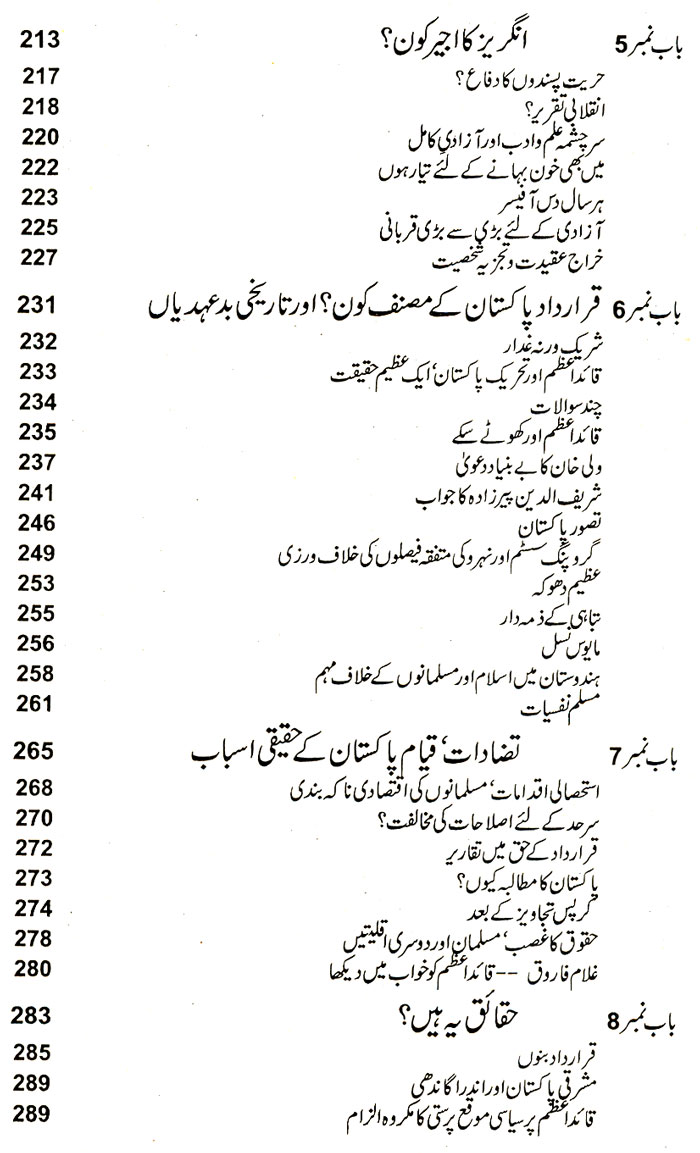 باب نمبر 5 انگریز کا اجیر کون؟ 213
حریت پسندوں کا دفاع؟ 217
انقلابی تقریر؟ 218
سرچشمہ علم و ادب اور آزادیِ کامل 220
میں بھی خون بہانے کے لئے تیار ہوں 222
ہر سال دس آفیسر 223
آزادی کے لئے بڑی سے بڑی قربانی 225
خراج عقیدت و تجزیہ شخصیت 227
باب نمبر 6 قرارداد پاکستان کے مصنف کون؟ اور تاریخی بدعہدیاں 231
شریک ورنہ غدار 232
قائداعظم اور تحریک پاکستان‘ ایک عظیم حقیقت 233
چند سوالات 234
قائداعظم اور کھوٹے سکے 235
ولی خان کا بے بنیاد دعویٰ 237
شریف الدین پیرزادہ کا جواب 241
تصور پاکستان 246
گروپنگ سسٹم اور نہرو کی متفقہ فیصلوں کی خلاف ورزی 249
عظیم دھوکہ 253
تباہی کے ذمہ دار 255
مایوس نسل 256
ہندوستان میں اسلام اور مسلمانوں کے خلاف مہم 258
مسلم نفسیات 261
باب نمبر 7 تضادات‘ قیام پاکستان کے حقیقی اسباب 265
استحصالی اقدامات‘ مسلمانوں کی اقتصادی ناکہ بندی 268
سرحد کے لئے اصلاحات کی مخالفت؟ 270
قرارداد کے حق میں تقاریر 272
پاکستان کا مطالبہ کیوں؟ 273
کرپس تجاویز کے بعد 274
حقوق کا غصب‘ مسلمان اور دوسری اقلیتیں 278
غلام فاروق -- قائداعظم کو خواب میں دیکھا 280
باب نمبر 8 حقائق یہ ہیں؟ 283
قرارداد بنوں 285
مشرقی پاکستان اور اندرا گاندھی 289
قائداعظم پر سیاسی موقع پرستی کا مکروہ الزام 289